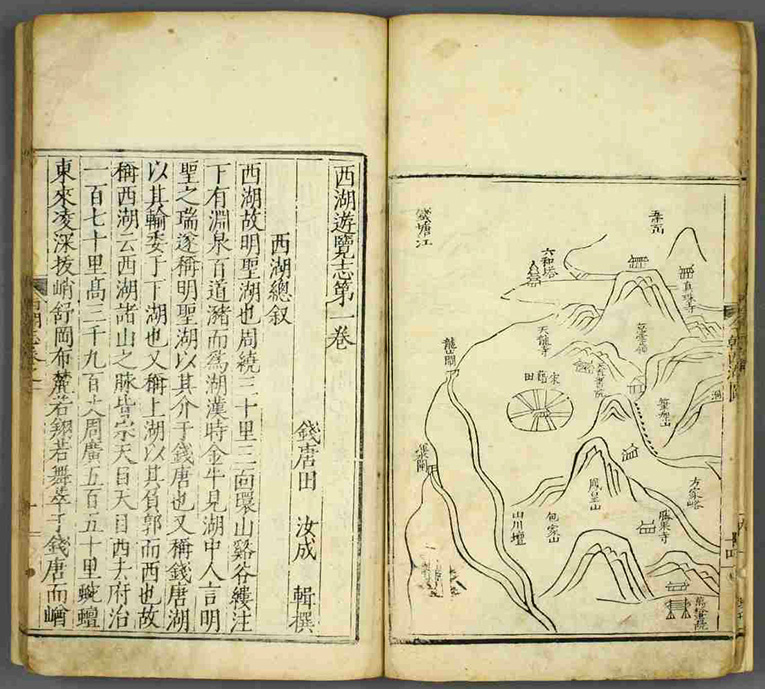 真珠寺
六和塔
錢塘江
慈雲嶺
天龍寺
宋藉田
龍山閘
方家峪
鳳皇山
包家山
山川壇
西湖遊覽志第一卷
錢唐田 汝成 輯撰
西湖總叙
西湖故明聖湖也周繞三十里三面環山谿谷縷注
下有淵泉百道瀦而爲湖漢時金牛見湖中人言明
聖之瑞遂稱明聖湖以其介于錢唐也又稱錢唐湖
以其輸委于下湖也又稱上湖以其負郭而西也故
稱西湖云西湖諸山之脉皆宗天目天目西去府治
一百七十里高三千九百丈周廣五百五十里蜿蟺
東來凌深拔峭舒岡布麓若翔若舞萃于錢唐而崷